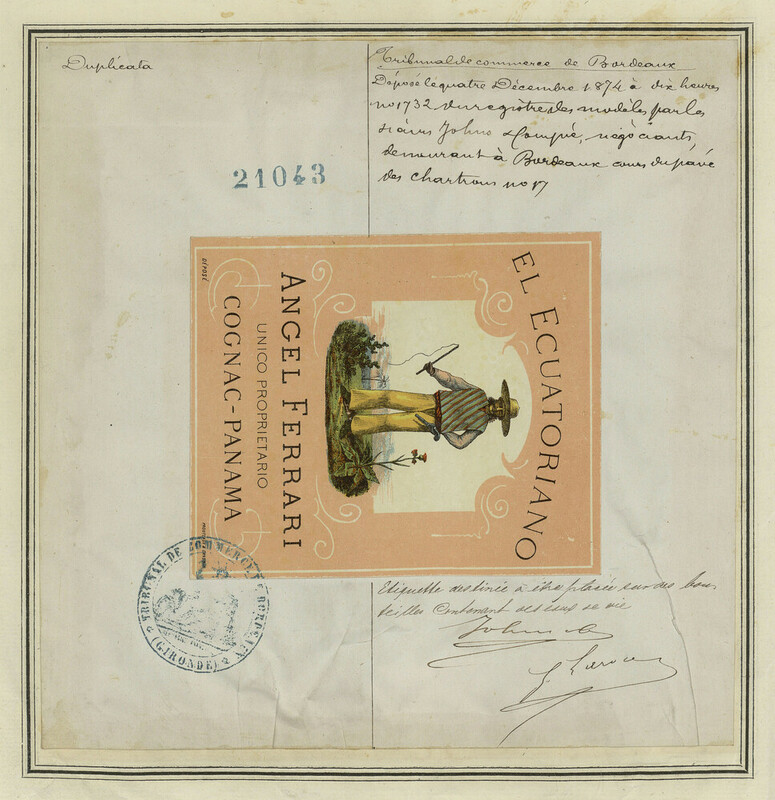 Duplicata
Tribunal de commerce de Bordeaux
Déposé le quatre Décembre 1874 à dix heures
no 1732 du registre des modèles par les
sieurs Johns & Compie, négociants,
demeurant à Bordeaux cours du pavé
des Chartrons no 17
21043
EL ECUATORIANO
ANGEL FERRARI
UNICO PROPRIETARIO
COGNAC-PANAMA
DÉPOSÉ
TRIBUNAL DE COMMERCE DE BORDEAUX
(GIRONDE)
Etiquette destinée à être placée sur des bou-
teilles contenant des eaux de vie